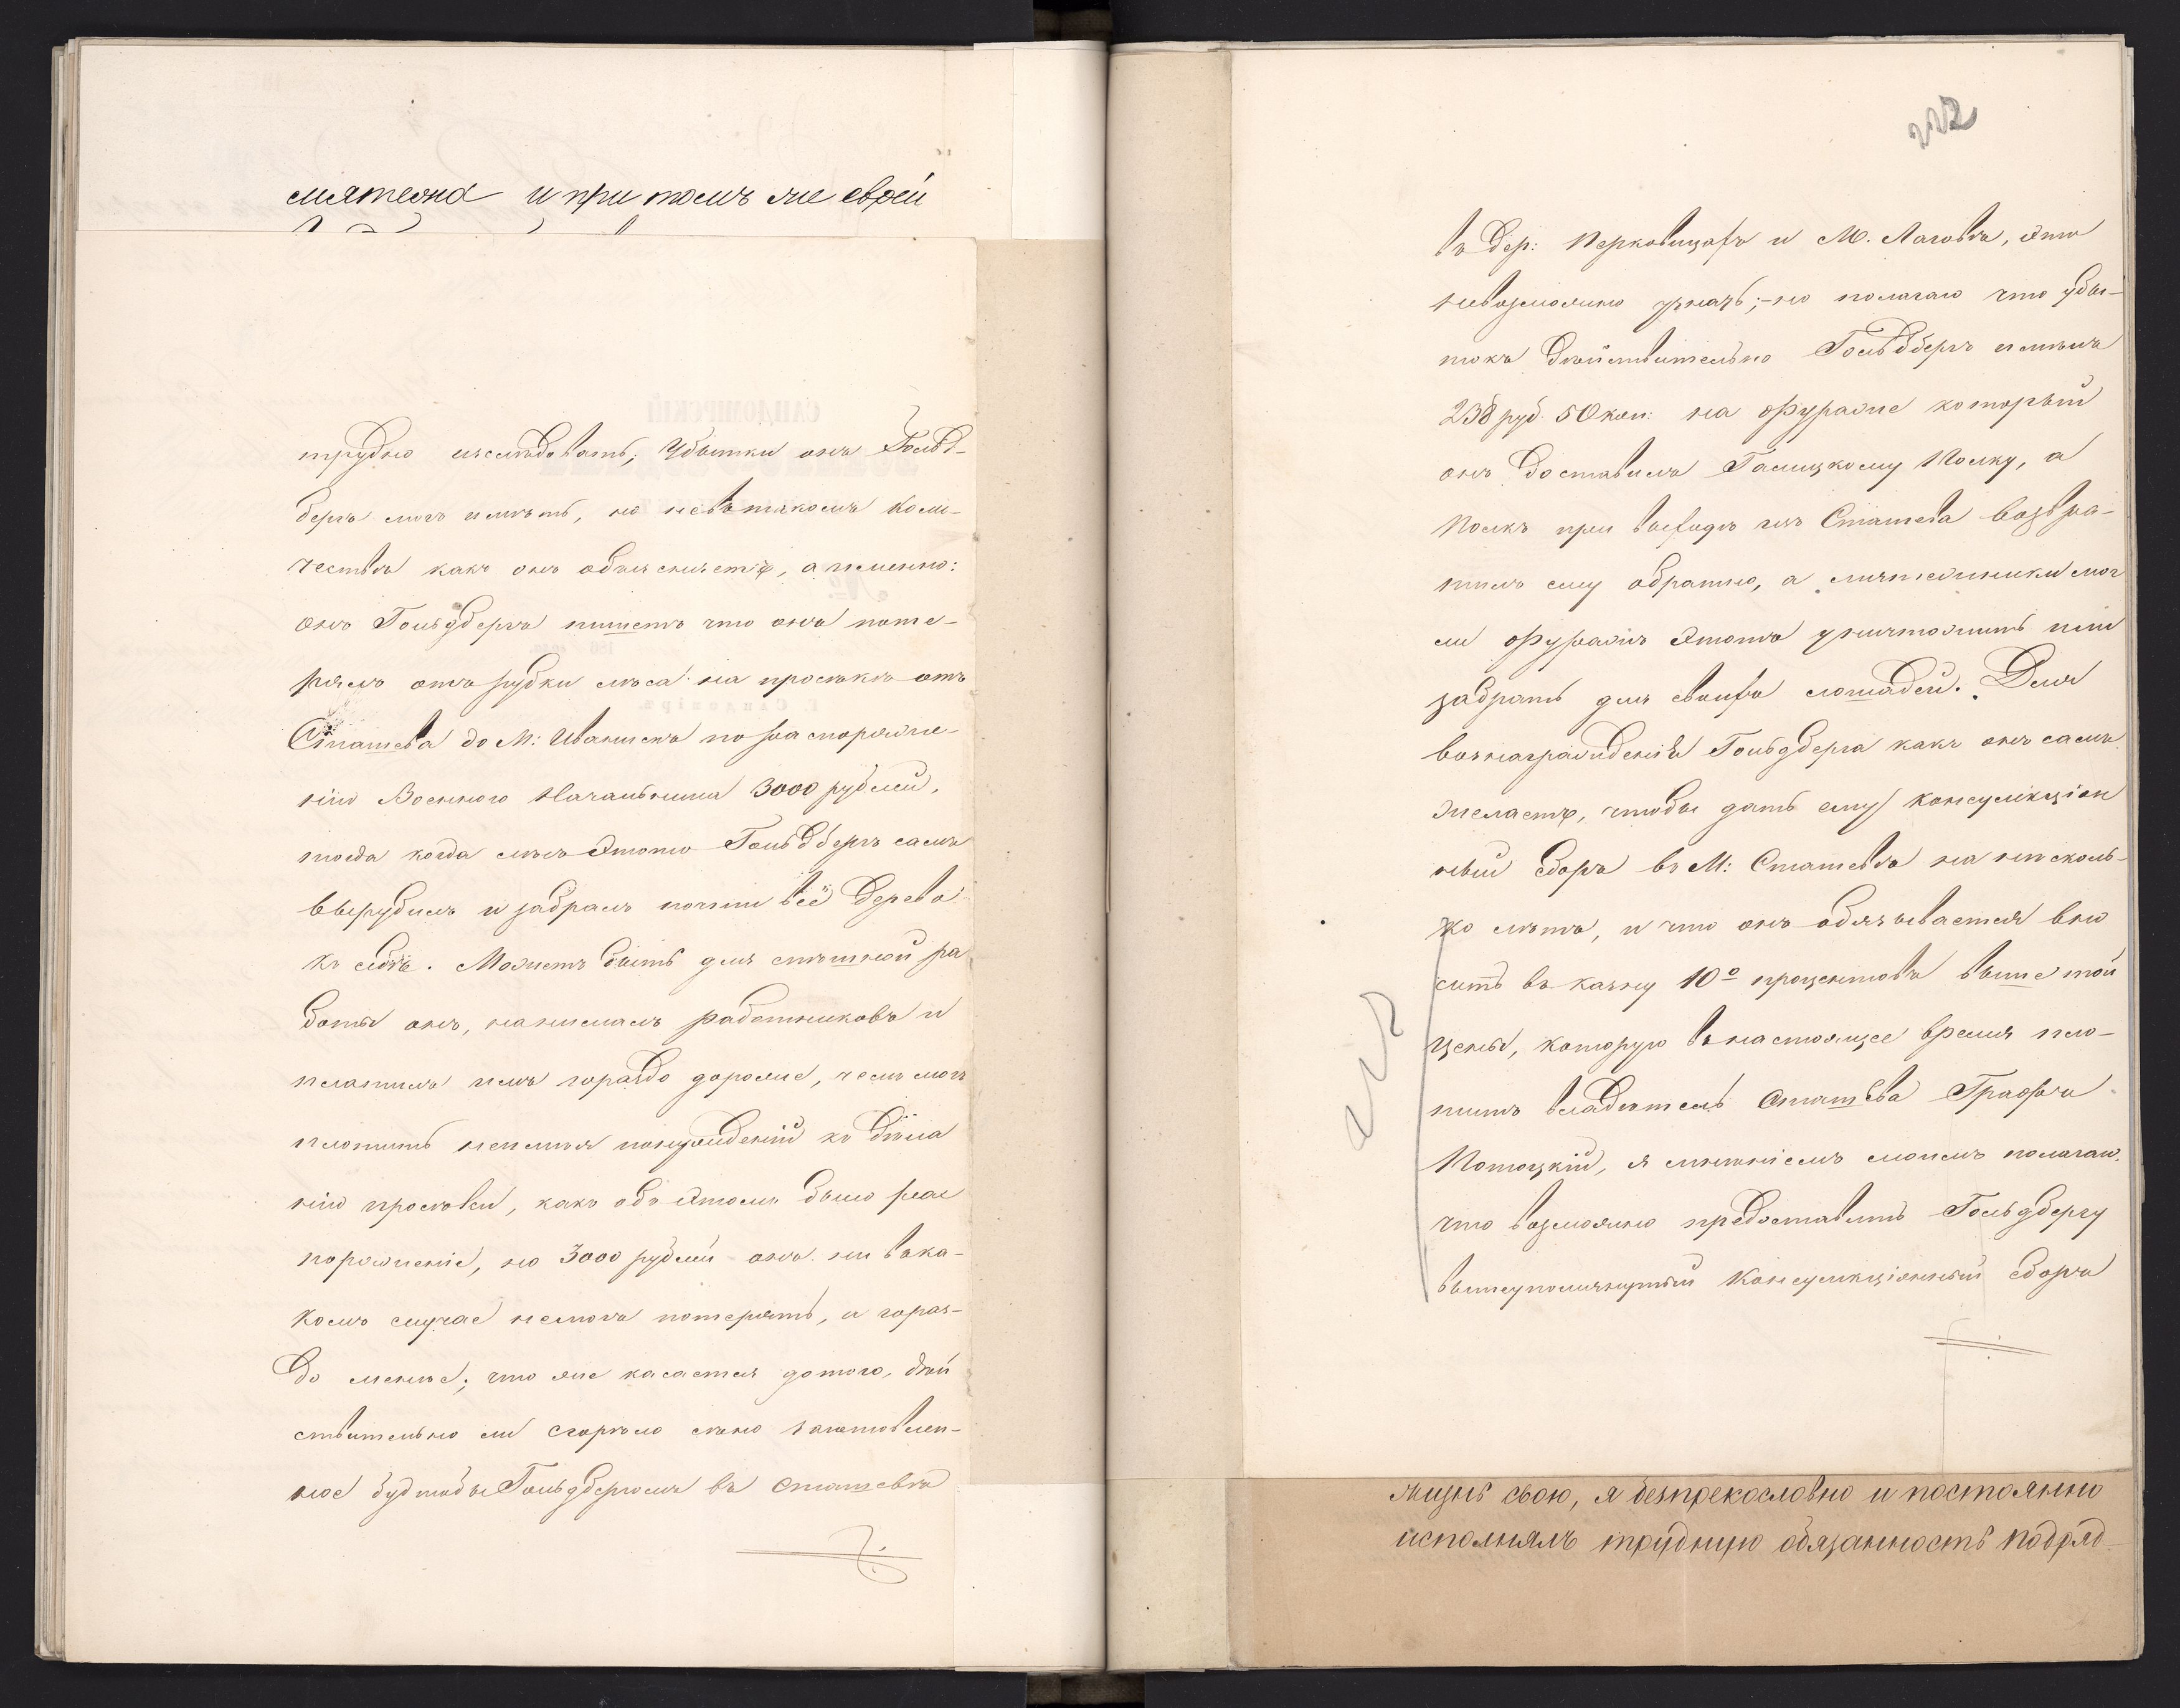 мятежа и при томъ же еврей
трудно изслѣдовать; Убытки онъ Гольд-
бергъ могъ имѣть, но не въ такомъ коли-
чествѣ какъ онъ объясняетъ, а именно:
онъ Гольдбергъ пишетъ что онъ поте-
рялъ отъ рубки лѣса на просѣкѣ отъ
Сташева до М: Иваниска по распоряже-
нію Военного Начальника 3000 рублей,
тогда когда лѣсъ этотъ Гольдбергъ самъ
вырубилъ и забралъ почти всё дерево
къ себѣ. Можетъ быть для спѣшной ра
боты онъ, нанималъ работниковъ и
платилъ имъ гораздо дороже, чемъ могъ
платить неимѣя понужденій къ дѣла
нію просѣки, какъ объ этомъ было рас
поряженіе, но 3000 рублей онъ ни въ ка-
комъ случае немогъ потерять, а гораз-
до менѣе; что же касается до того, дѣй
ствительно ли сгорѣло сѣно заготовлен-
ное будтобы Гольдбергомъ въ Сташевѣ
въ дер: Перковицахъ и М. Лаговѣ, это
невозможно узнать; но полагаю что убы-
токъ дѣйствительно Гольдбергъ имѣлъ
238 руб. 50 коп: на фураже который
онъ доставилъ Галицкому Полку, а
Полкъ при выходѣ изъ Сташева возвра-
тилъ ему обратно, а мятежники мог
ли фуражъ этотъ уничтожить или
забрать для своихъ лошадей. Для
вознагражденія Гольдберга какъ онъ самъ
желаетъ, чтобы дать ему консумкціон
ный сборъ въ М: Сташевѣ на нѣсколь-
ко лѣтъ, и что онъ обязывается вно
сить въ казну 10º процентовъ выше той
цены, которую въ настоящее время пло-
титъ владѣтель Сташева Графъ
Потоцкій, я мнѣніемъ моимъ полагаю.
что возможно предоставить Гольдбергу
вышеупомянутый Консумкціонный сборъ
жизнь свою, я безпрекословно и постоянно
исполнялъ трудную обязанность подряд-